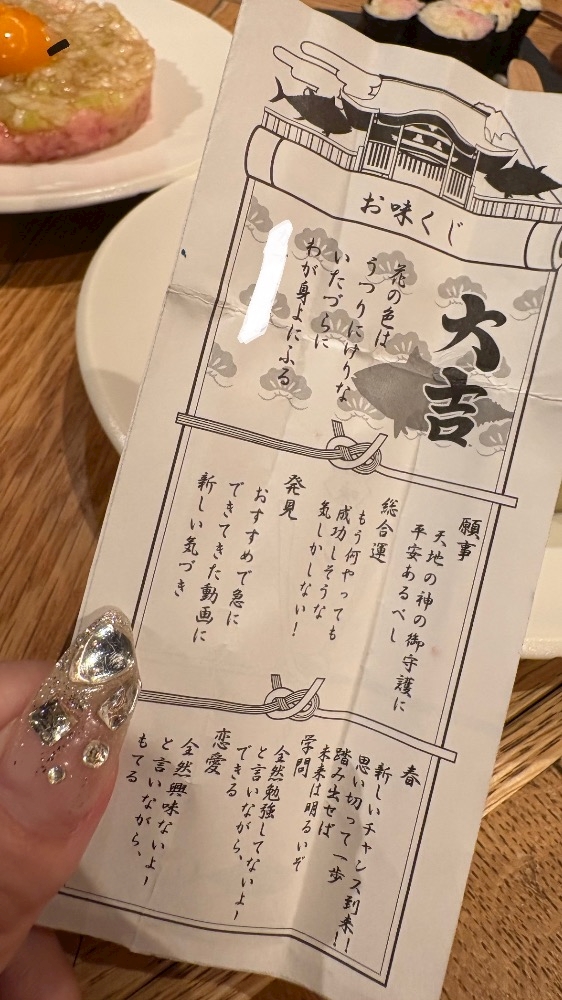 お味くじ
大吉
花の色は
うつりにけりな
いたづらに
わが身よにふる
願事
天地の神の御守護に
平安あるべし
総合運
もう何やっても
成功しそうな
気しかしない！
発見
おすすめで急に
でてきた動画に
新しい気づき
春
新しいチャンス到来！！
思い切って一歩
踏み出せば
未来は明るいぞ
学問
全然勉強してないよー
と言いながら、
できる
恋愛
全然興味ないよー
と言いながら、
もてる